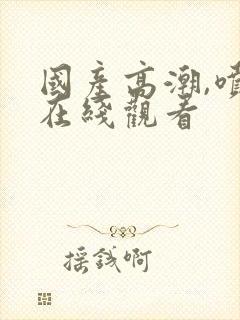 國產高潮,噴
在綫觀看
揺錢啊